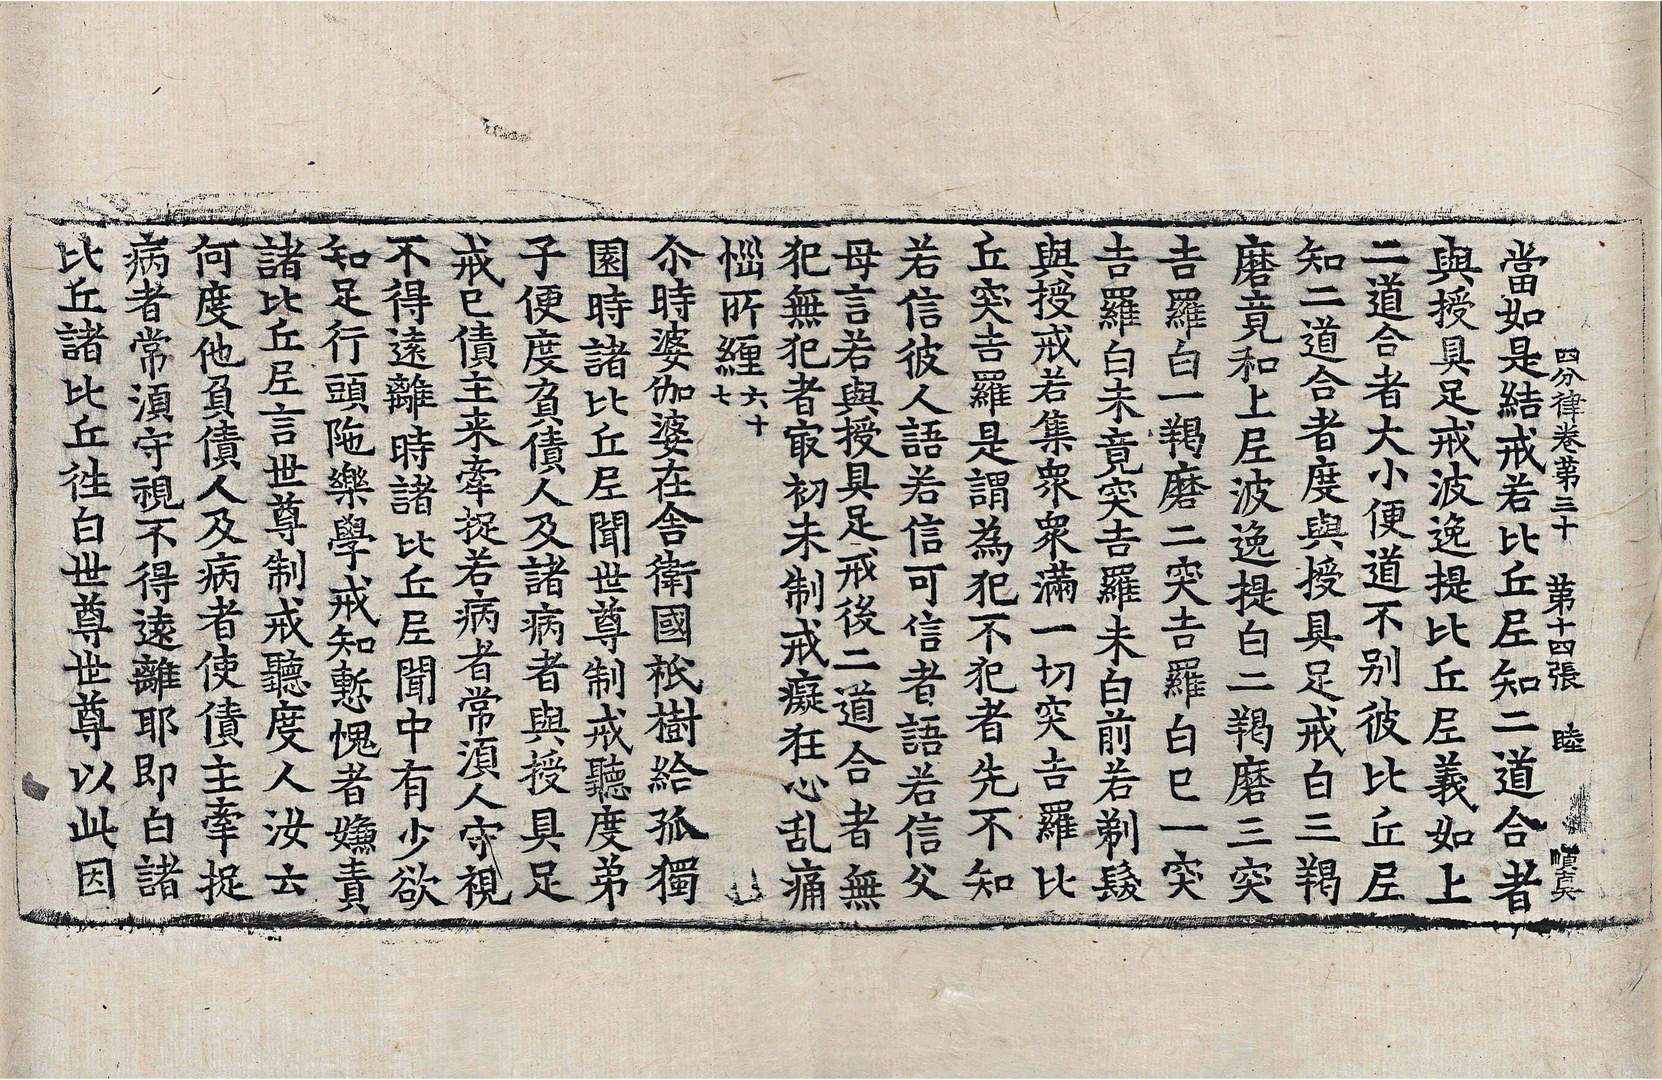 四分律卷第三十 第十四張 睦
當如是結戒若比丘尼知二道合者
與授具足戒波逸提比丘尼義如上
二道合者大小便道不别彼比丘尼
知二道合者度與授具足戒白三羯
磨竟和上尼波逸提白二羯磨三突
吉羅白一羯磨二突吉羅白已一突
吉羅白未竟突吉羅未白前若剃髮
與授戒若集衆衆滿一切突吉羅比
丘突吉羅是謂為犯不犯者先不知
若信彼人語若信可信者語若信父
母言若與授具足戒後二道合者無
犯無犯者㝡初未制戒癡狂心乱痛
惱所纏六十七
尒時婆伽婆在舍衛國祇樹給孤獨
園時諸比丘尼聞世尊制戒聽度弟
子便度負債人及諸病者與授具足
戒已債主来牽捉若病者常湏人守視
不得遠離時諸比丘尼聞中有少欲
知足行頭陁樂學戒知慙愧者嫌責
諸比丘尼言世尊制戒聽度人汝云
何度他負債人及病者使債主牽捉
病者常湏守視不得遠離耶即白諸
比丘諸比丘徃白世尊世尊以此因